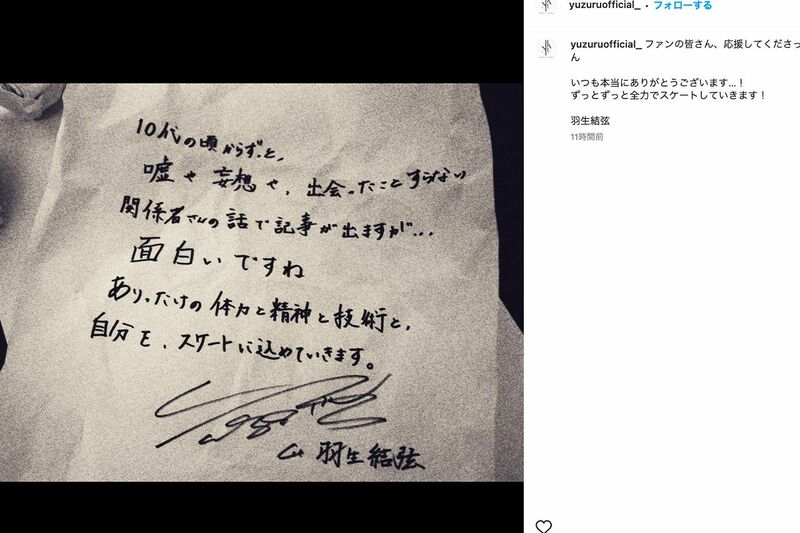 yuzuruofficial_ • フォローする
yuzuruofficial_ ファンの皆さん、応援してくださっ
ん
いつも本当にありがとうございます...！
ずっとずっと全力でスケートしていきます！
羽生結弦
11時間前
10代の頃からずっと、
嘘や妄想や、出会ったことすらない
関係者さんの話で記事が出ますが...
面白いですね
ありったけの体力と精神と技術と、
自分を、スケートに込めていきます。
羽生結弦